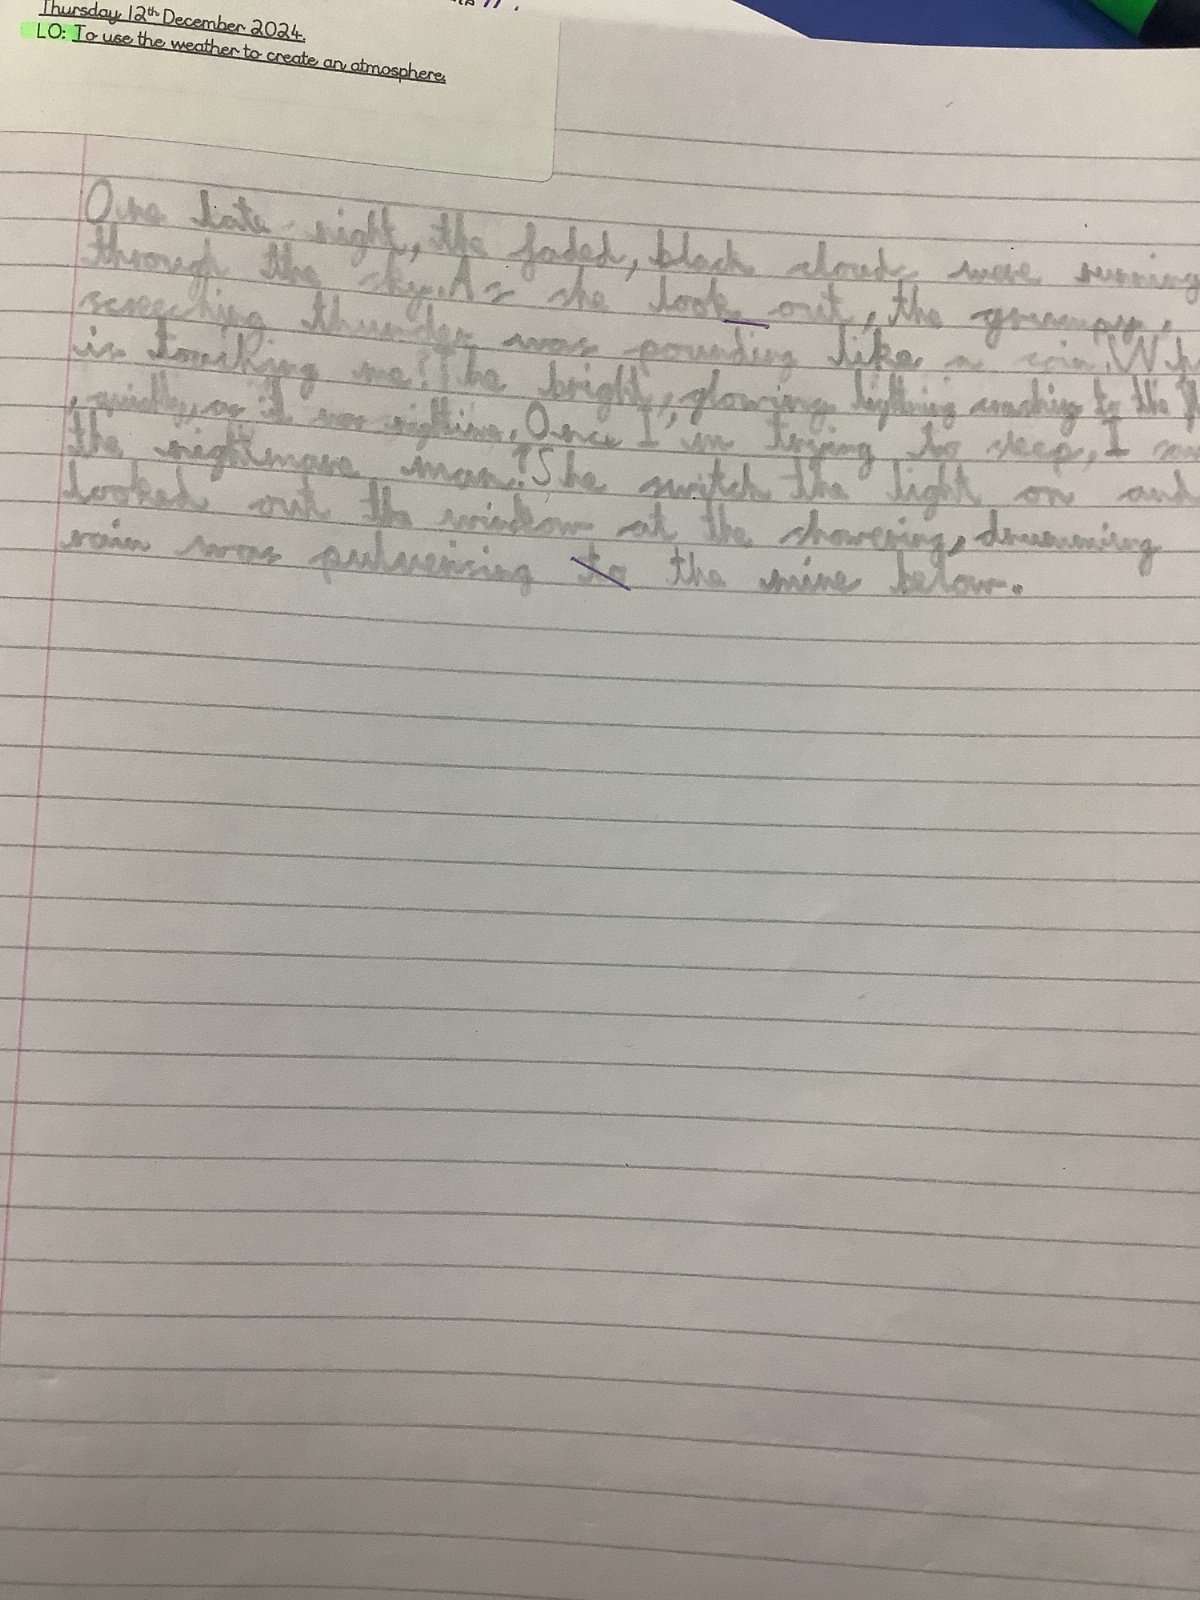 Thursday 12th December 2024.
LO: To use the weather to create an atmosphere.
One late night, the faded, black clouds were running
through the sky. As she look out, the grumpy,
screeching thunder was pounding like a
is touching me? The bright, glowing lightning crashing to the
, quietly, as it was Once I'm trying to sleep, I
the nightmare man! She switch the light on and
looked out the window at the showering, drumming
rain was pulverising to the mine below.